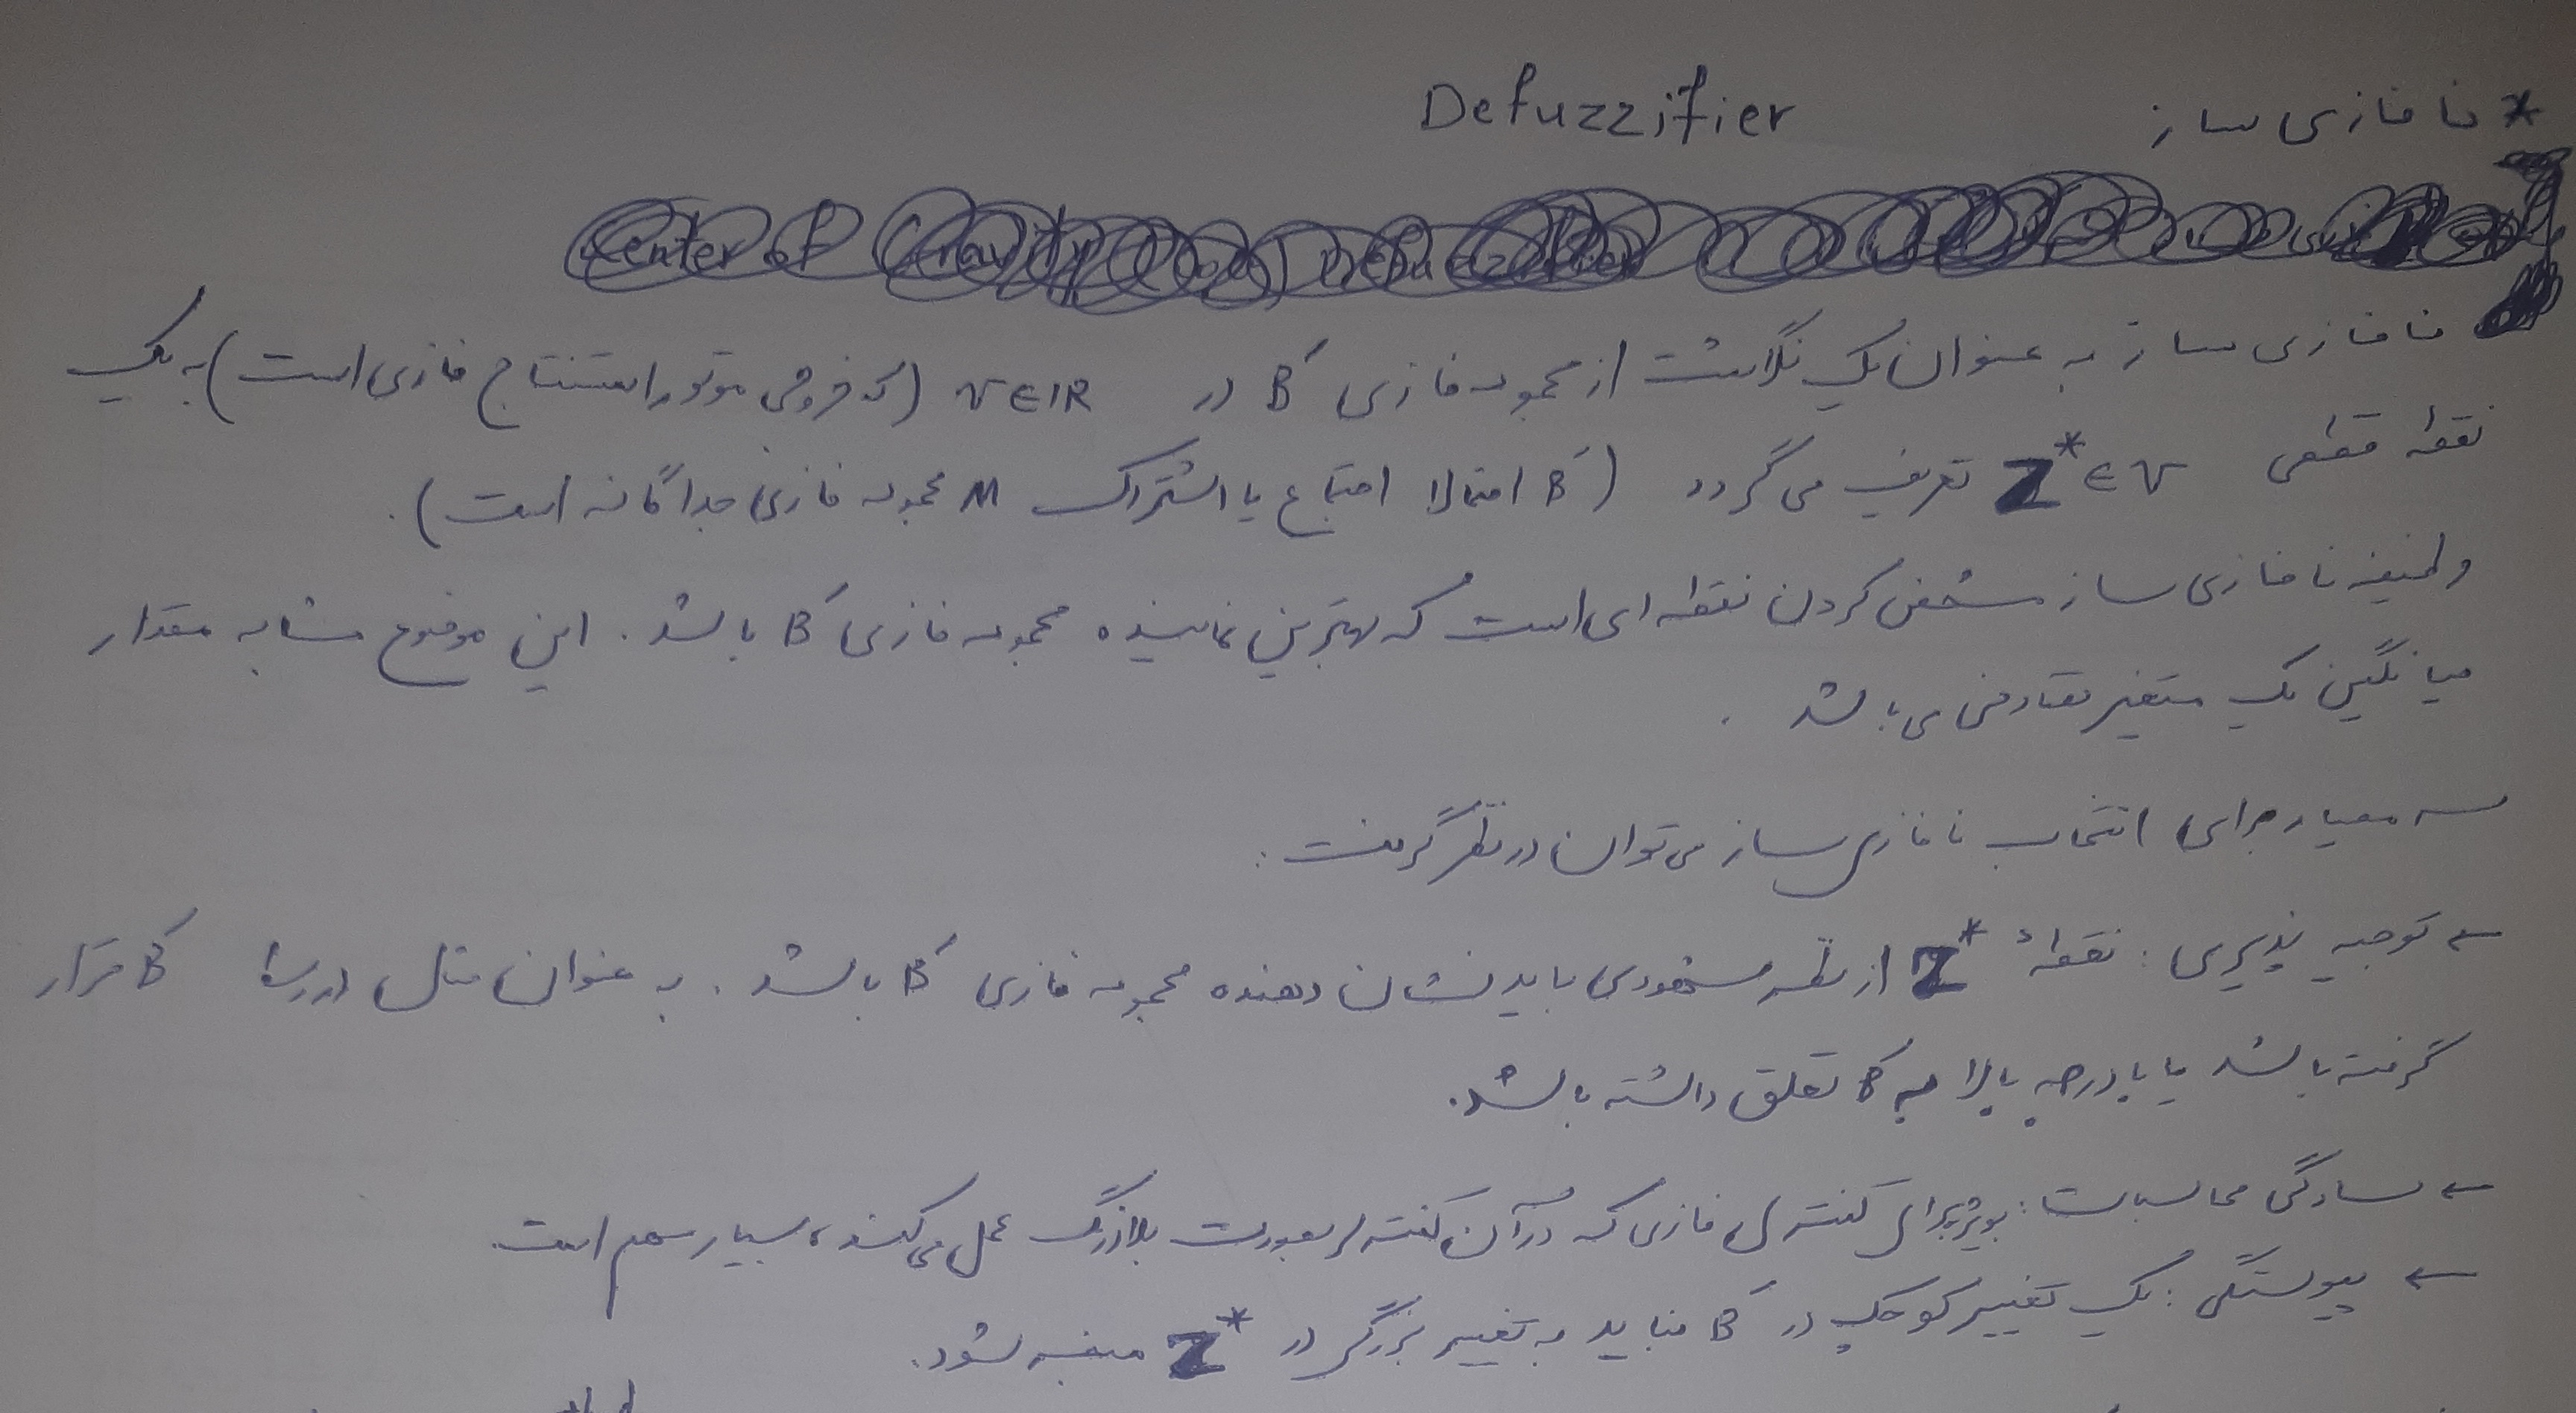 * نا فازی ساز Defuzzifier
Center of Gravity Defuzzifier
نا فازی ساز به عنوان یک نگاشت از مجموعه فازی B́ در V∈IR (که خروجی موتور استنتاج فازی است) به یک
نقطه قطعی Z*∈V تعریف می گردد (B́ احتمالا اجتماع یا اشتراک M مجموعه فازی جداگانه است).
وظیفه نا فازی ساز مشخص کردن نقطه ای است که بهترین نماینده مجموعه فازی B́ باشد. این موضوع مشابه مقدار
میانگین یک متغیر تصادفی می باشد.
سه معیار برای انتخاب نا فازی ساز می توان در نظر گرفت:
← توجیه پذیری: نقطهٔ Z* از نظر شهودی باید نشان دهنده مجموعه فازی B́ باشد. به عنوان مثال در وسط B́ قرار
گرفته باشد یا با درجه بالا به B́ تعلق داشته باشد.
← سادگی محاسبات: بویژه برای کنترل فازی که در آن کنترلر بصورت بلادرنگ عمل می کند، بسیار مهم است.
← پیوستگی: یک تغییر کوچک در B́ نباید به تغییر بزرگی در Z* منجر شود.